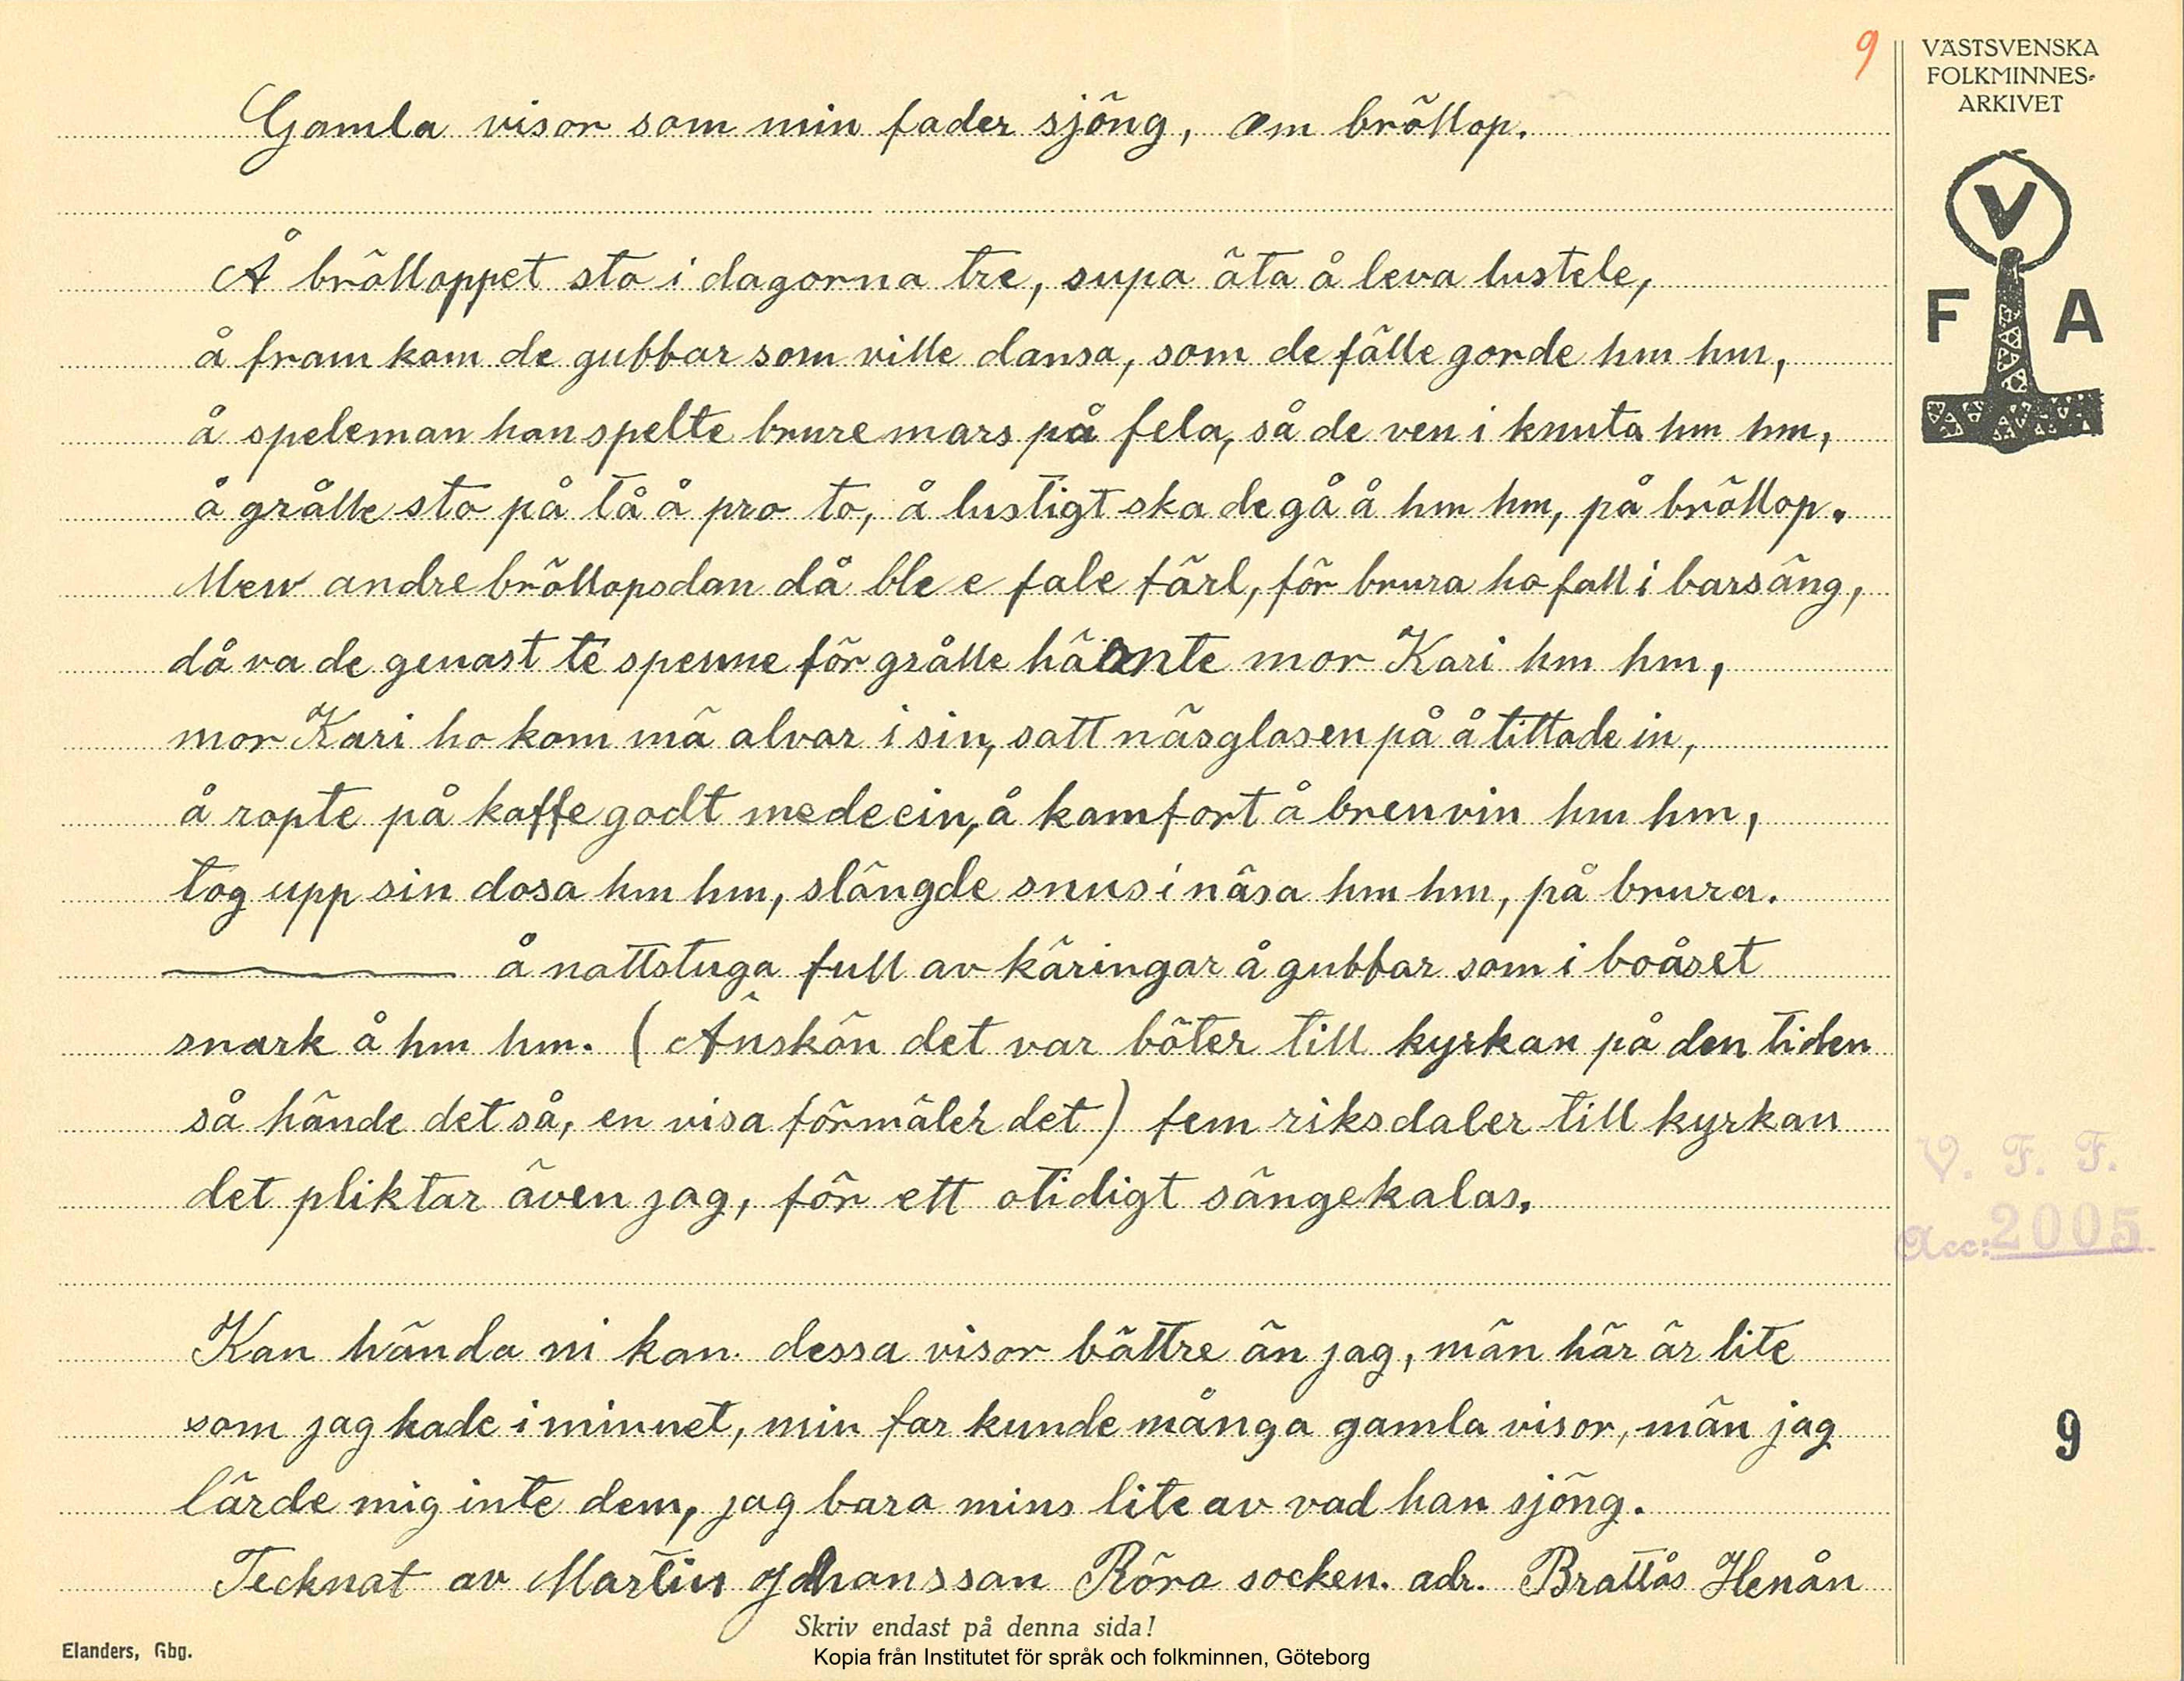 9
VÄSTSVENSKA
FOLKMINNES-
ARKIVET
V
F A
Gamla visor som min fader sjöng, om bröllop.
Å brölloppet sto i dagorna tre, supa äta å leva lustele,
å fram kom de gubbar som ville dansa, som de fälle gorde hm hm,
å speleman han spelte brure mars på fela, så de ven i knuta hm hm,
å grålle sto på tå å pro to, å lustigt ska de gå å hm hm, på bröllop.
Men andre bröllopsdan då ble e fale färl, för brura ho fall i barsäng,
då va de genast te spenne för grålle hä nte mor Kari hm hm,
mor Kari ho kom mä alvar i sin, satt näsglasen på å tittade in,
å ropte på kaffe godt medecin, å kamfort å brenvin hm hm,
tog upp sin dosa hm hm, slängde snus i näsa hm hm, på brura.
å nattstuga full av käringar å gubbar som i boåset
snark å hm hm. (Änskön det var böter till kyrkan på den tiden
så hände det så, en visa förmäler det) fem riksdaler till kyrkan
det pliktar även jag, för ett otidigt sängekalas.
Kan hända ni kan dessa visor bättre än jag, män här är lite
som jag hade i minnet, min far kunde många gamla visor, män jag
lärde mig inte dem, jag bara mins lite av vad han sjöng.
Tecknat av Martin Johansson Röra socken. adr. Brattås Henån
V. F. F.
Acc: 2005
9
Skriv endast på denna sida!
Elanders, Gbg.
Kopia från Institutet för språk och folkminnen, Göteborg